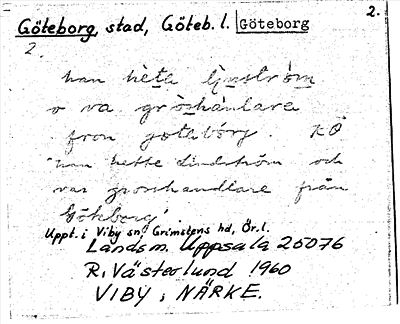 Göteborg, stad, Göteb. l. Göteborg 2.
2.
han heta
o va gròshanlare
fron goteborg. KÖ
"han hette Lindström och
var grosshandlare från
Göteborg'.
Uppt. i Viby sn, Grimstens hd, Ör. l.
Landsm. Uppsala 25076
R. Västerlund 1960
VIBY i NÄRKE.